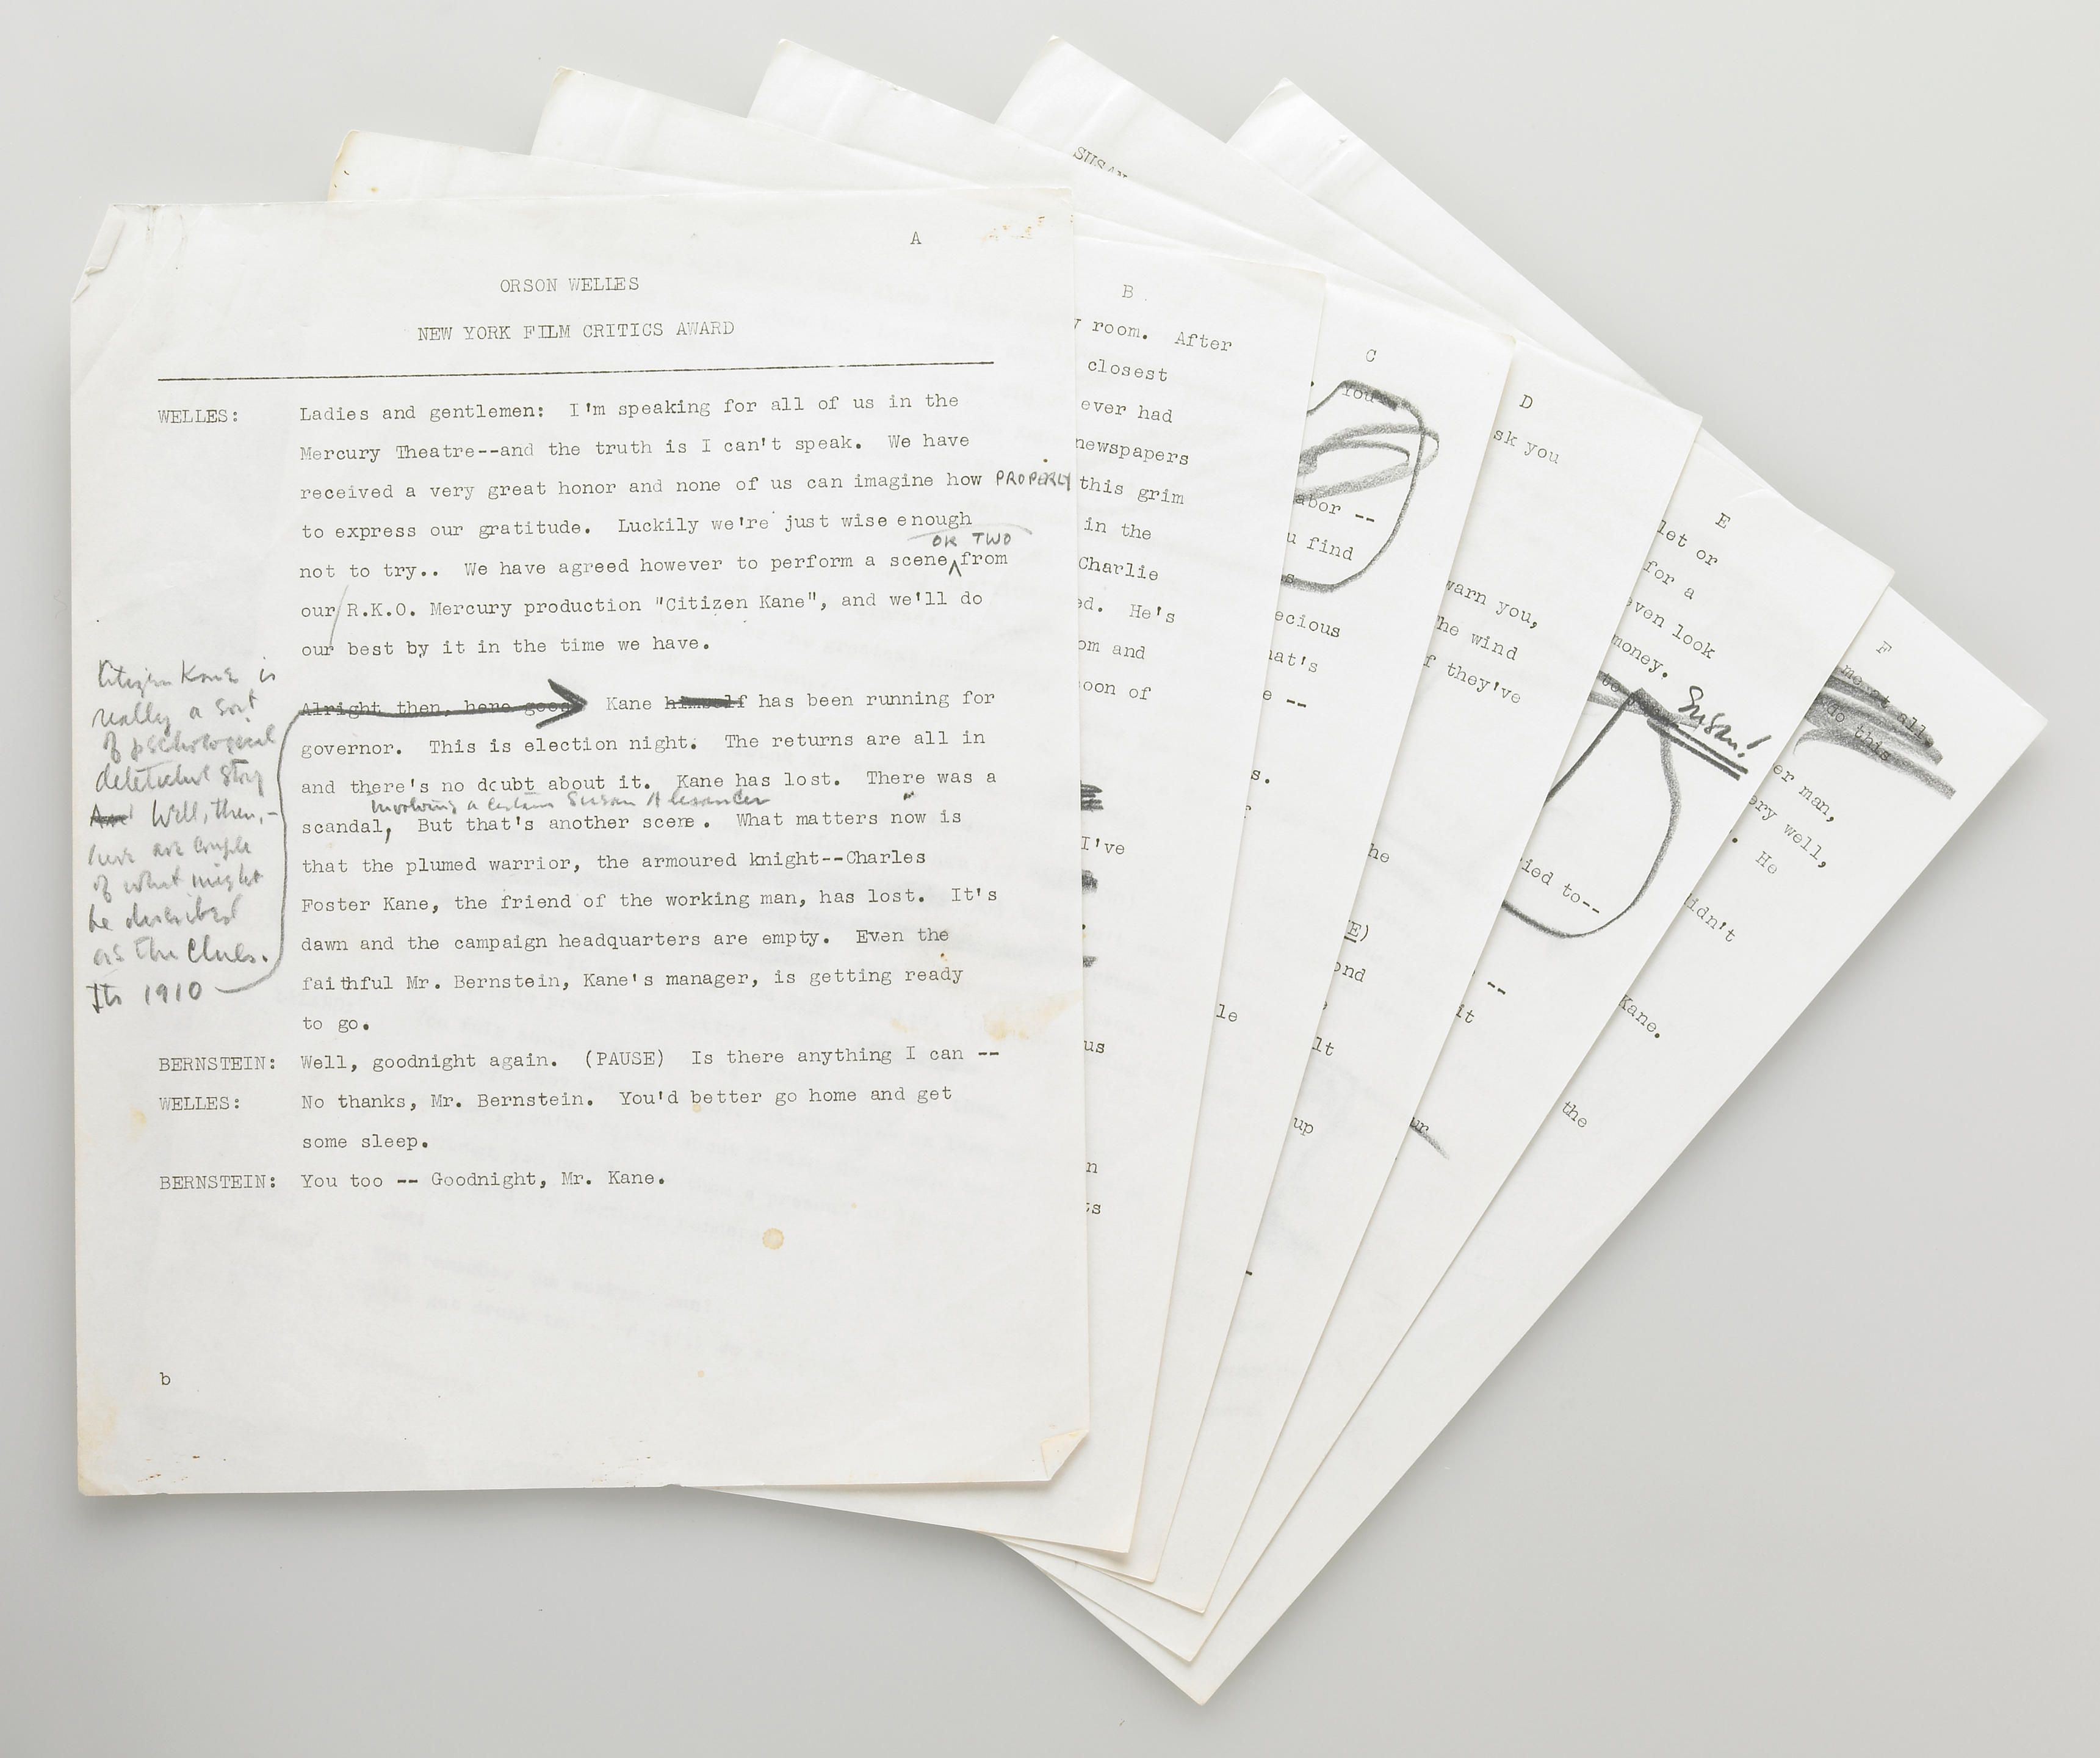 A
ORSON WELLES
NEW YORK FILM CRITICS AWARD
WELLES: Ladies and gentlemen: I'm speaking for all of us in the
Mercury Theatre--and the truth is I can't speak. We have
received a very great honor and none of us can imagine how PROPERLY
to express our gratitude. Luckily we're just wise enough
OR TWO
not to try.. We have agreed however to perform a scene from
our R.K.O. Mercury production "Citizen Kane", and we'll do
our best by it in the time we have.
Citizen Kane is
really a sort
of
story
Well, then,-
here are couple
of what might
be described
as the Clues.
Its 1910
Alright then, here goes Kane himself has been running for
governor. This is election night. The returns are all in
and there's no doubt about it. Kane has lost. There was a
involving a certain Susan Alexander
scandal, But that's another scene. What matters now is
that the plumed warrior, the armoured knight--Charles
Foster Kane, the friend of the working man, has lost. It's
dawn and the campaign headquarters are empty. Even the
faithful Mr. Bernstein, Kane's manager, is getting ready
to go.
BERNSTEIN: Well, goodnight again. (PAUSE) Is there anything I can --
WELLES: No thanks, Mr. Bernstein. You'd better go home and get
some sleep.
BERNSTEIN: You too -- Goodnight, Mr. Kane.
b
B
room. After
closest
ever had
newspapers
this grim
in the
Charlie
ed. He's
om and
oon of
I've
us
n
ts
C
You
abor --
u find
s
ecious
hat's
e --
s.
le
SUSAN
D
sk you
warn you,
he wind
f they've
he
E)
ond
lt
up
E
let or
for a
even look
money.
to
Susan!
ied to--
--
it
ur
F
me at all.
do this
er man,
ery well,
. He
didn't
Kane.
the